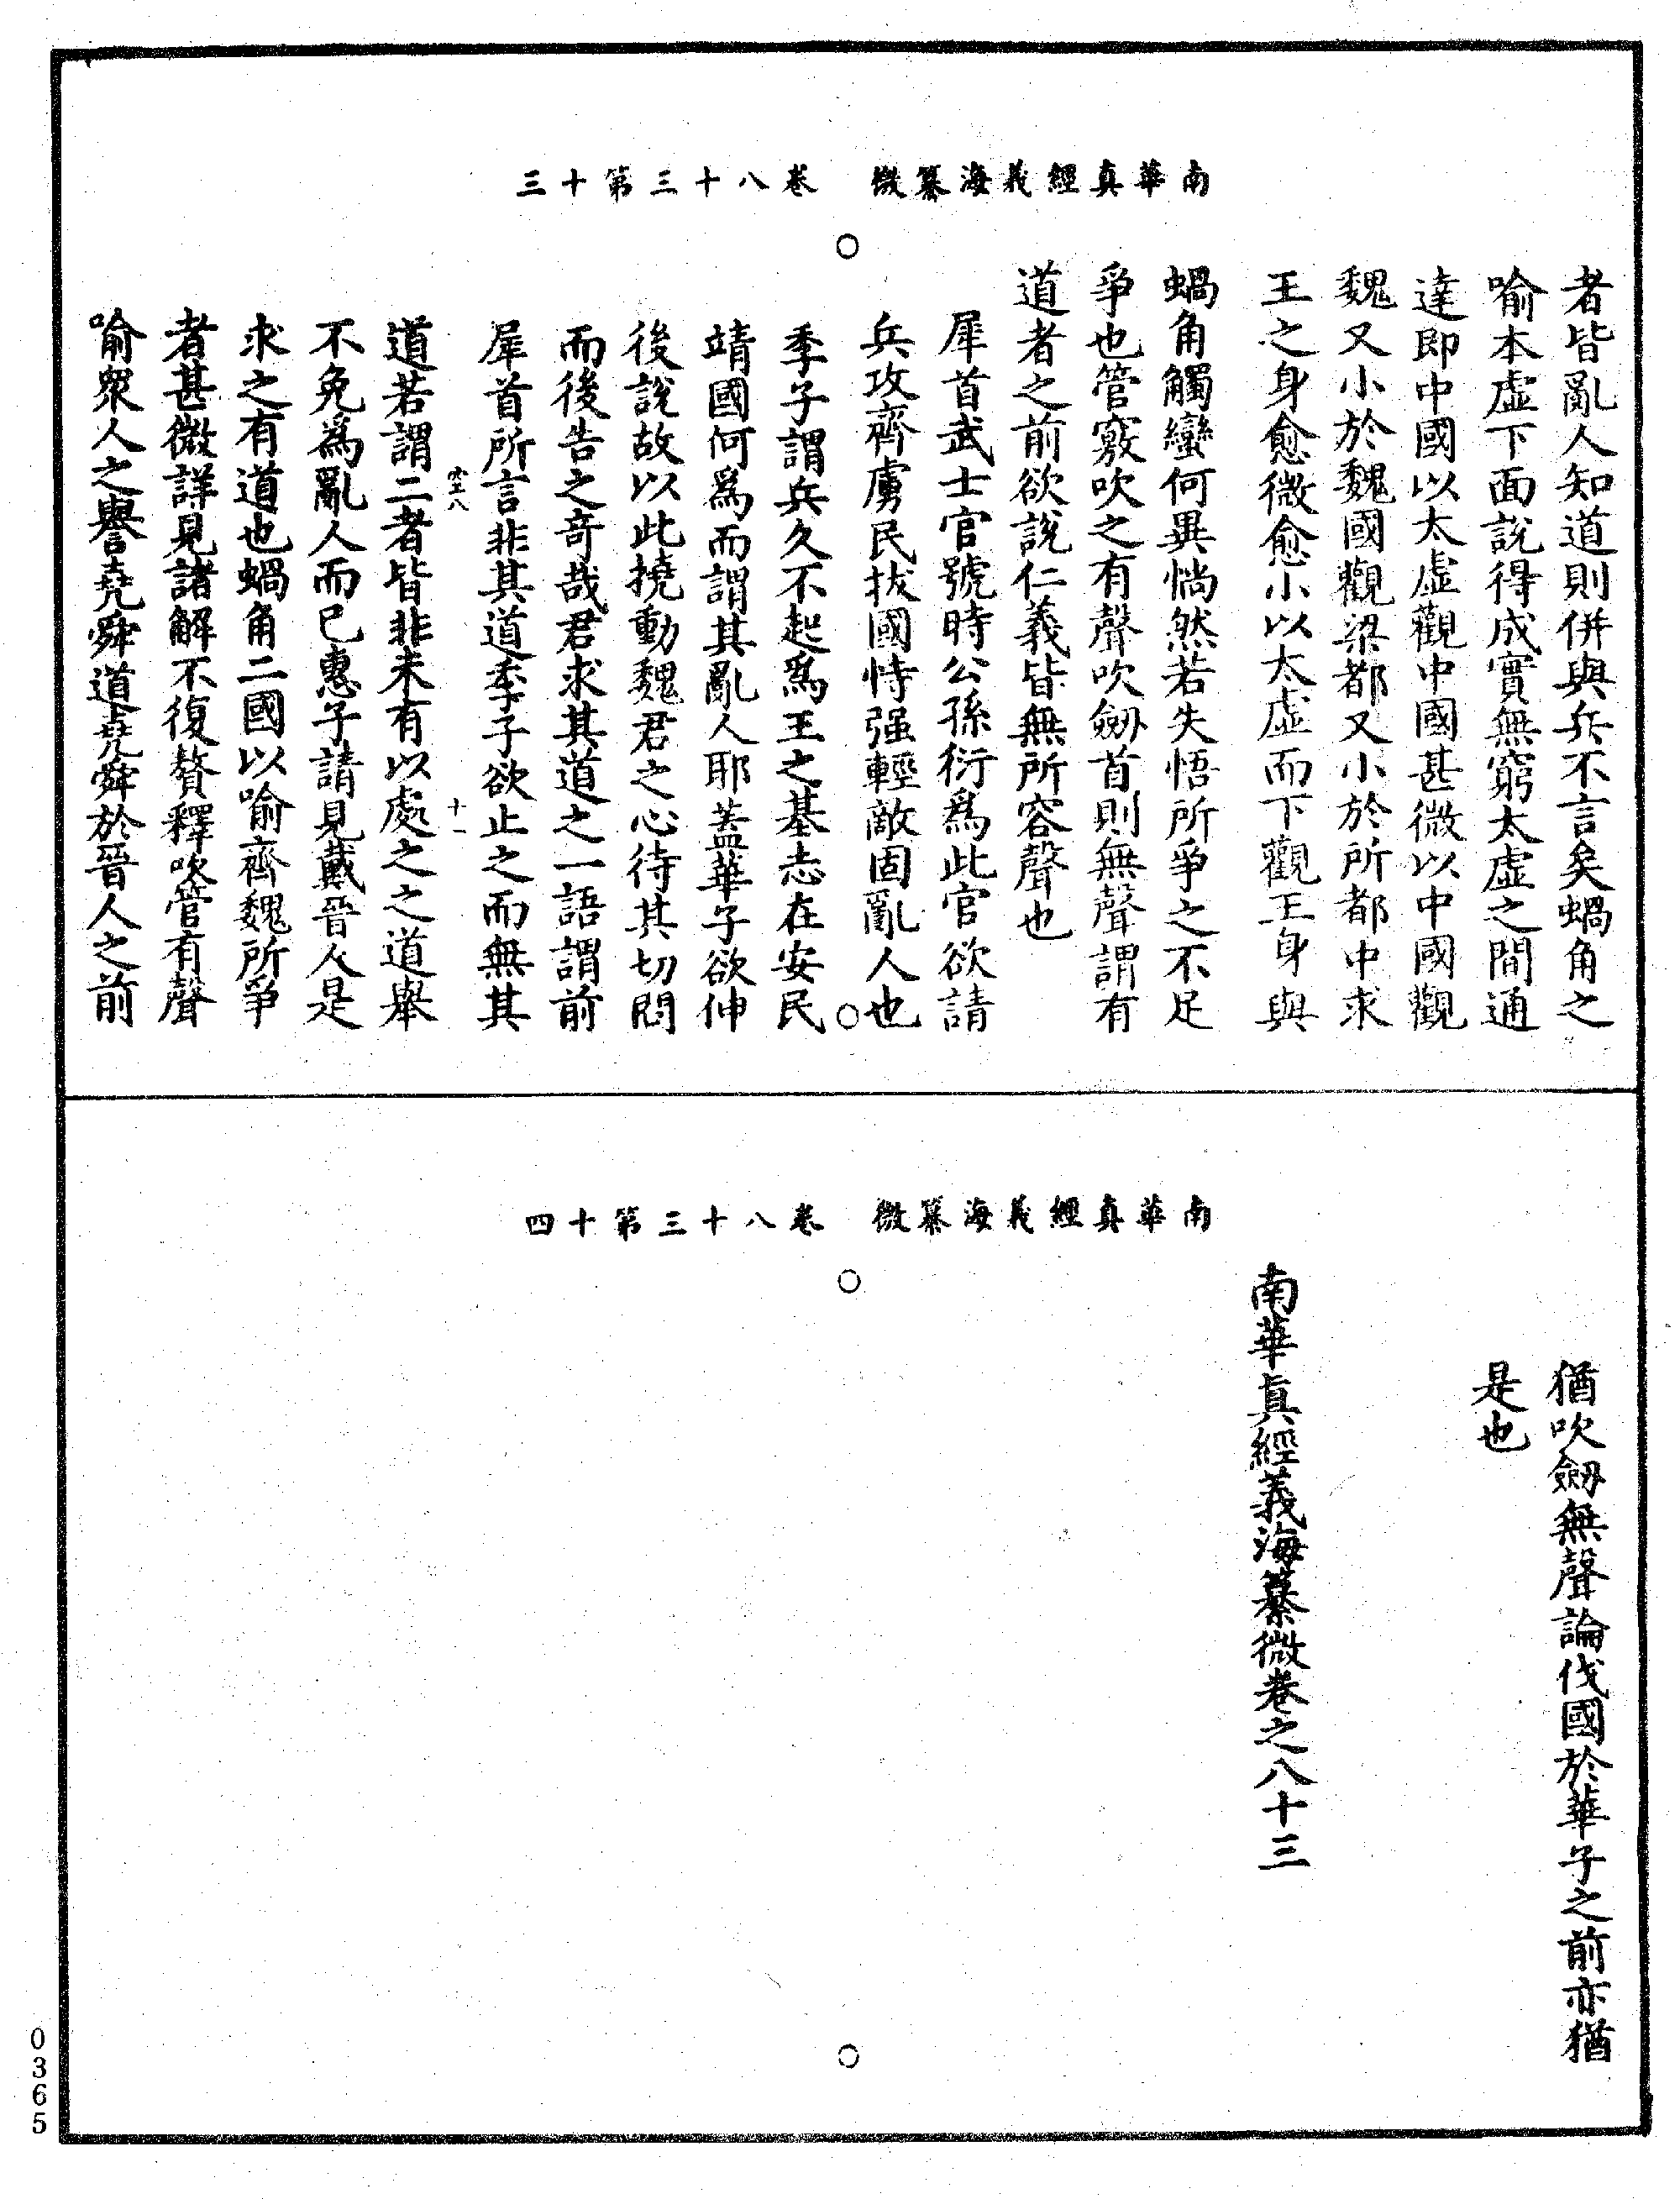 南華真經義海纂微　卷八十三第十三
者皆亂人知道則併與兵不言矣蝸角之
喻本虛下面說得成實無窮太虛之間通
達即中國以太虛觀中國甚微以中國觀
魏又小於魏國觀梁都又小於所都中求
王之身愈微愈小以太虛而下觀王身與
蝸角觸蠻何異惝然若失悟所爭之不足
爭也管竅吹之有聲吹劒首則無聲謂有
道者之前欲說仁義皆無所容聲也
犀首武士官號時公孫衍爲此官欲請
兵攻齊虜民拔國恃强輕敵固亂人也
季子謂兵久不起爲王之基志在安民
靖國何爲而謂其亂人耶蓋華子欲伸
後說故以此撓動魏君之心待其切悶
而後告之奇哉君求其道之一語謂前
犀首所言非其道季子欲止之而無其
十一
道若謂二者皆非未有以處之之道舉
不免爲亂人而已惠子請見戴晉人是
求之有道也蝸角二國以喻齊魏所爭
者甚微詳見諸解不復贅釋吹管有聲
喻衆人之譽堯舜道堯舜於晉人之前
南華真經義海纂微　卷八十三第十四
猶吹劒無聲論伐國於華子之前亦猶
是也
南華真經義海纂微卷之八十三
0365